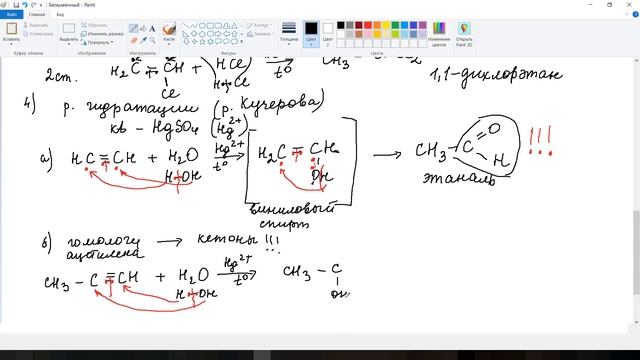 Безымянный - Paint
Файл Главная Вид
Вставить Вырезать Копировать Выделить Обрезать Изменить размер Повернуть Кисти Контур Заливка Толщина Цвет 1 Цвет 2 Изменение цветов Открыть Paint 3D
Буфер обмена Изображение Инструменты Фигуры Цвета
2ст. H₂C CH + HCl t° CH₃
Cl H Cl 1,1-дихлорэтан
4) р. гидратации (р. Кучерова)
кв - HgSO₄ (Hg²⁺)
а) HC ≡ CH + H₂O Hg²⁺ t° → [H₂C = CH OH] → CH₃ - C O H !!!
H OH
этаналь
виниловый
спирт
б) гомологи → кетоны !!!
ацетилена
CH₃ - C ≡ CH + H₂O Hg²⁺ t° → CH₃ - C
H OH OH